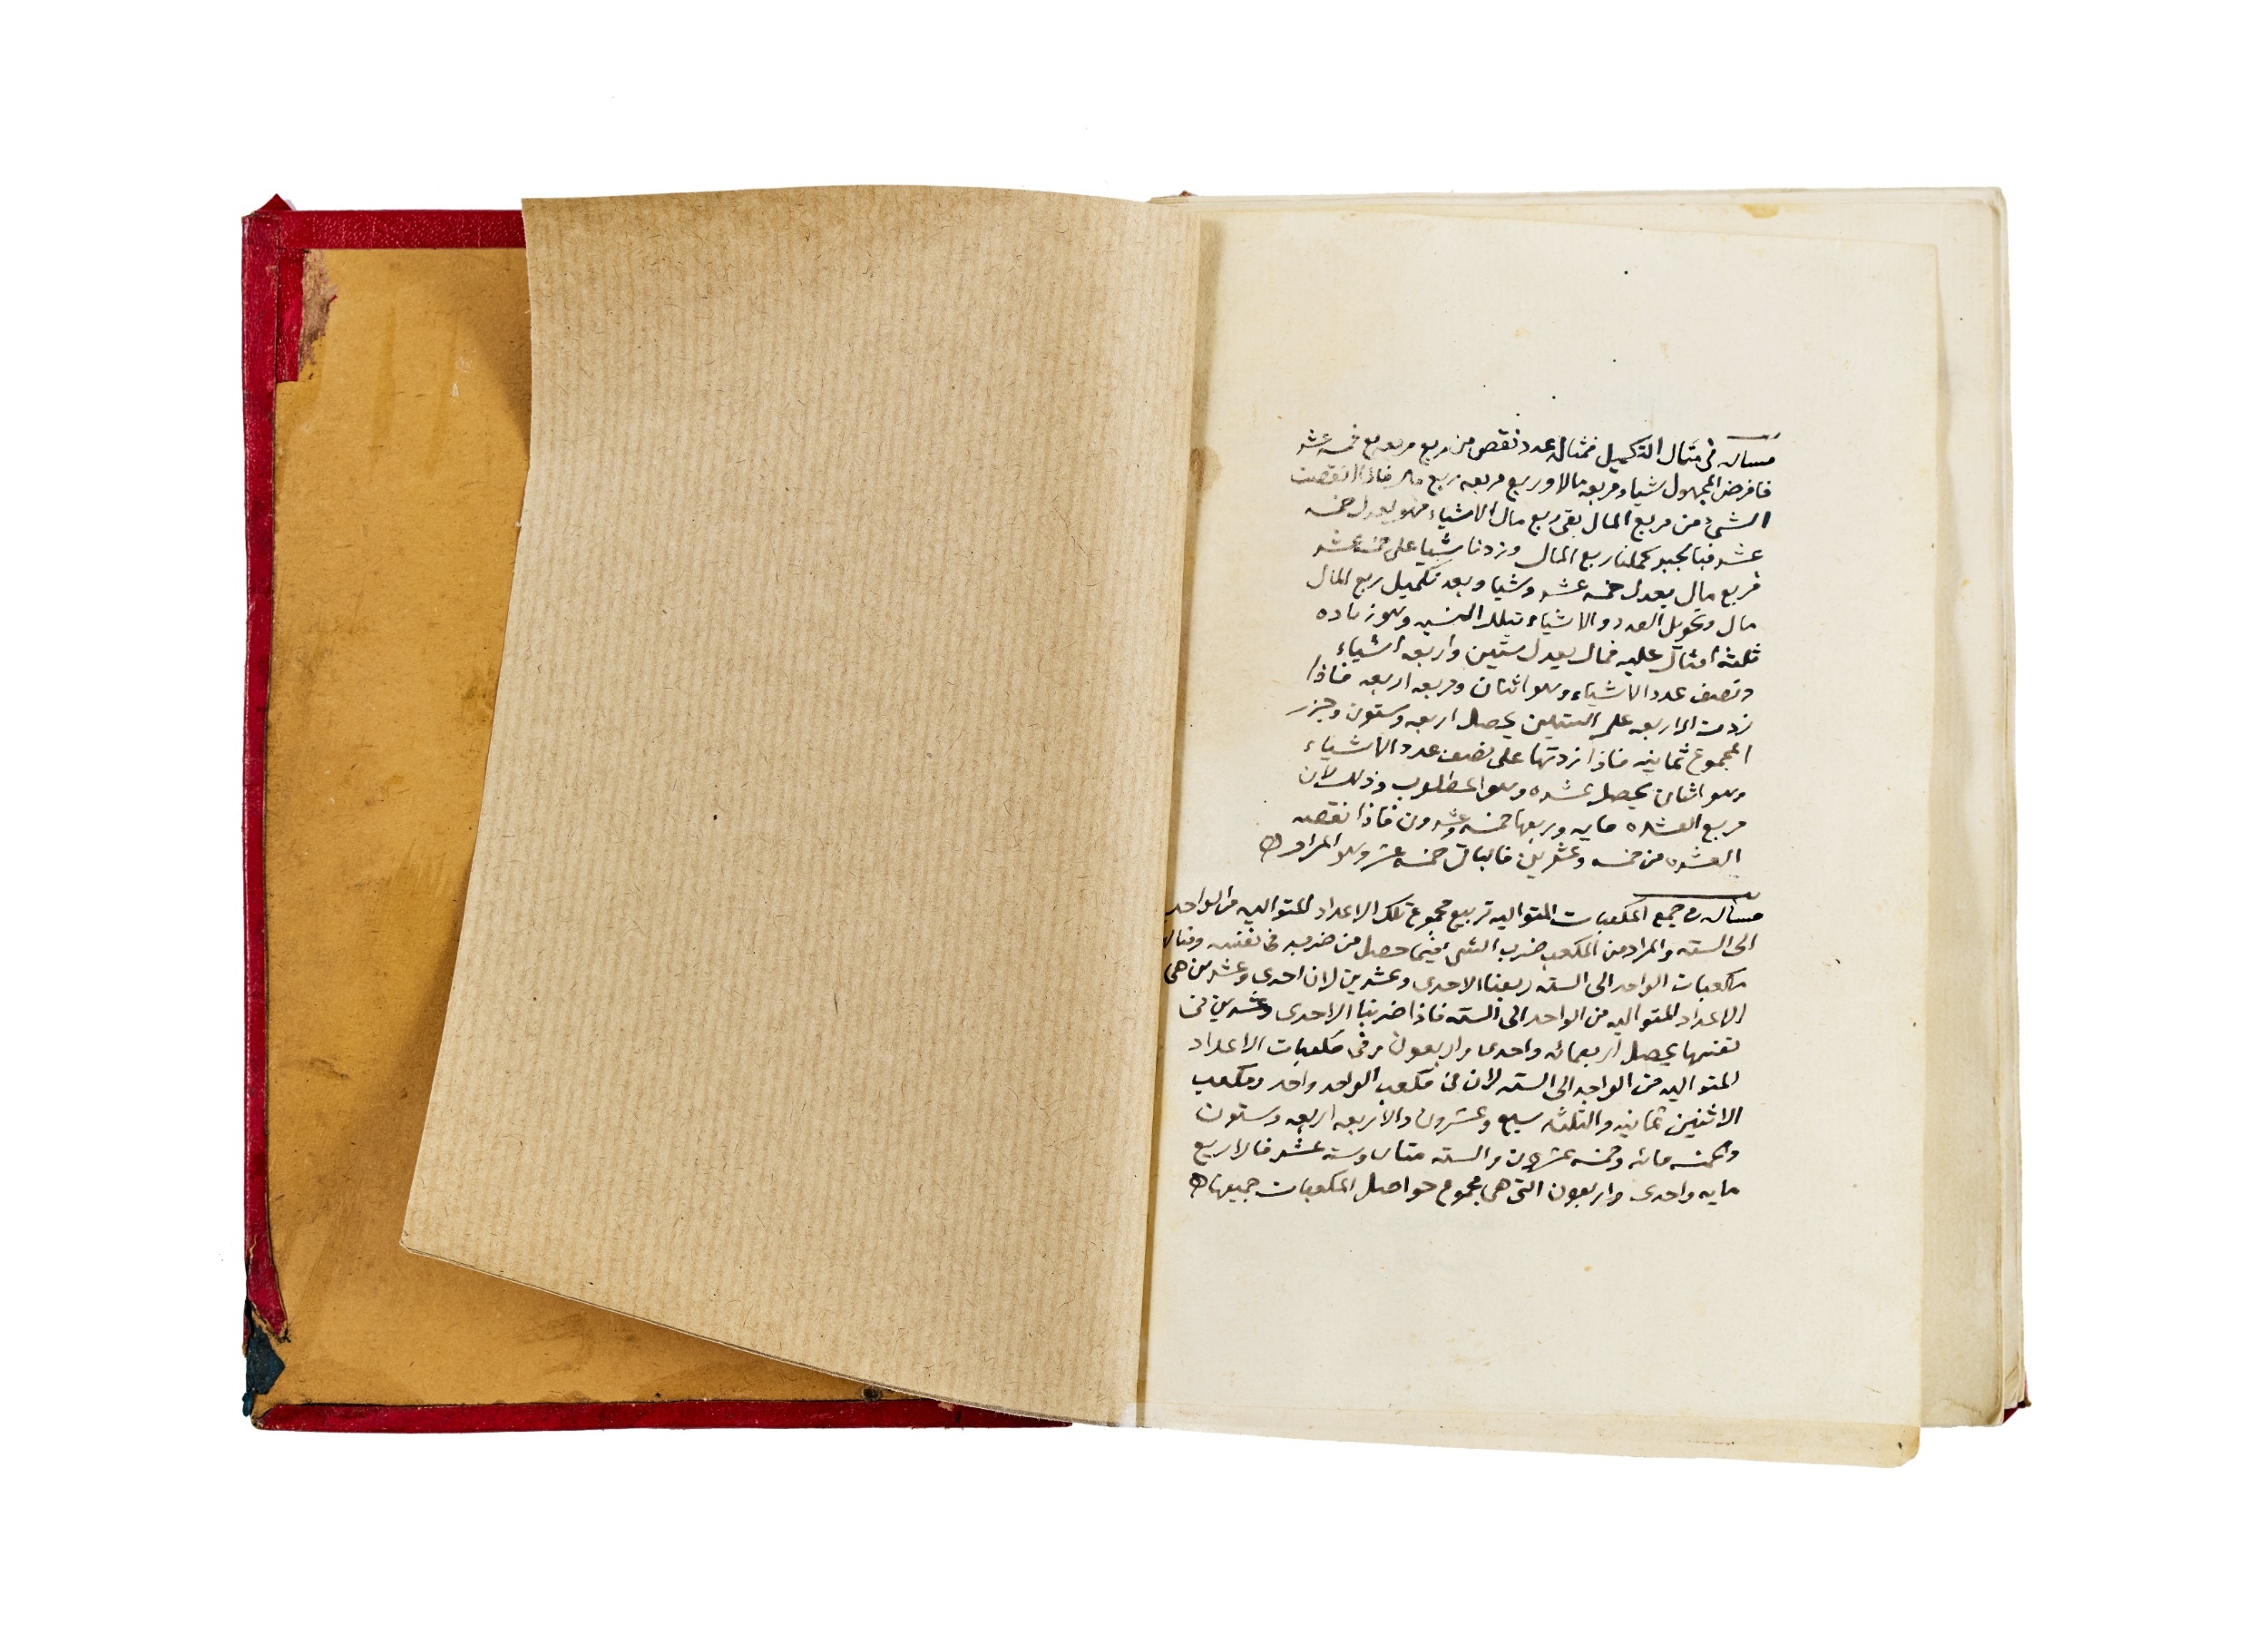 مسأله فى مثال التكميل فمثاله عدد نقص من ربع مربعه بقى خمسه عشر
فافرض المجهول شيا ومربعه مالا وربع مربعه ربع مال فاذا نقصت
الشىء من ربع المال بقى ربع مال الا شياء وهو يعدل خمسه
عشر فبالجبر كملنا ربع المال وزدنا شيا على خمسه عشر
فربع مال يعدل خمسه عشر وشيا وبعد تكميل ربع المال
مال وتحويل العدد والاشياء بتلك النسبه وهو زياده
ثلثه امثال عليه فمال يعدل ستين واربعه اشياء
ونصف عدد الاشياء وهو اثنان ومربعه اربعه فاذا
زدت الاربعه على الستين يحصل اربعه وستون وجزر
المجموع ثمانيه فاذا زدتها على نصف عدد الاشياء
وهو اثنان يحصل عشره وهو المطلوب وذلك لان
مربع العشره مايه وربعها خمسه وعشرون فاذا نقصت
العشره من خمسه وعشرين فالباقى خمسه عشر وهو المراد
مسأله فى جمع المكعبات المتواليه تربيع مجموع تلك الاعداد المتواليه من الواحد
الى السته والمراد من المكعب ضرب الشىء فيما حصل من ضربه فى نفسه ومثال
مكعبات الواحد الى السته ربعنا الاحدى وعشرين لان احدى وعشرين هى
الاعداد المتواليه من الواحد الى السته فاذا ضربنا الاحدى وعشرين فى
نفسها يحصل اربعمائه واحدى واربعون وفى مكعبات الاعداد
المتواليه من الواحد الى السته لان فى مكعب الواحد واحد ومكعب
الاثنين ثمانيه والثلثه سبع وعشرون والاربعه اربعه وستون
والخمسه مائه وخمسه عشرون والسته مئتان وسته عشر فالاربع
مايه واحدى واربعون التى هى مجموع حواصل المكعبات جميعها